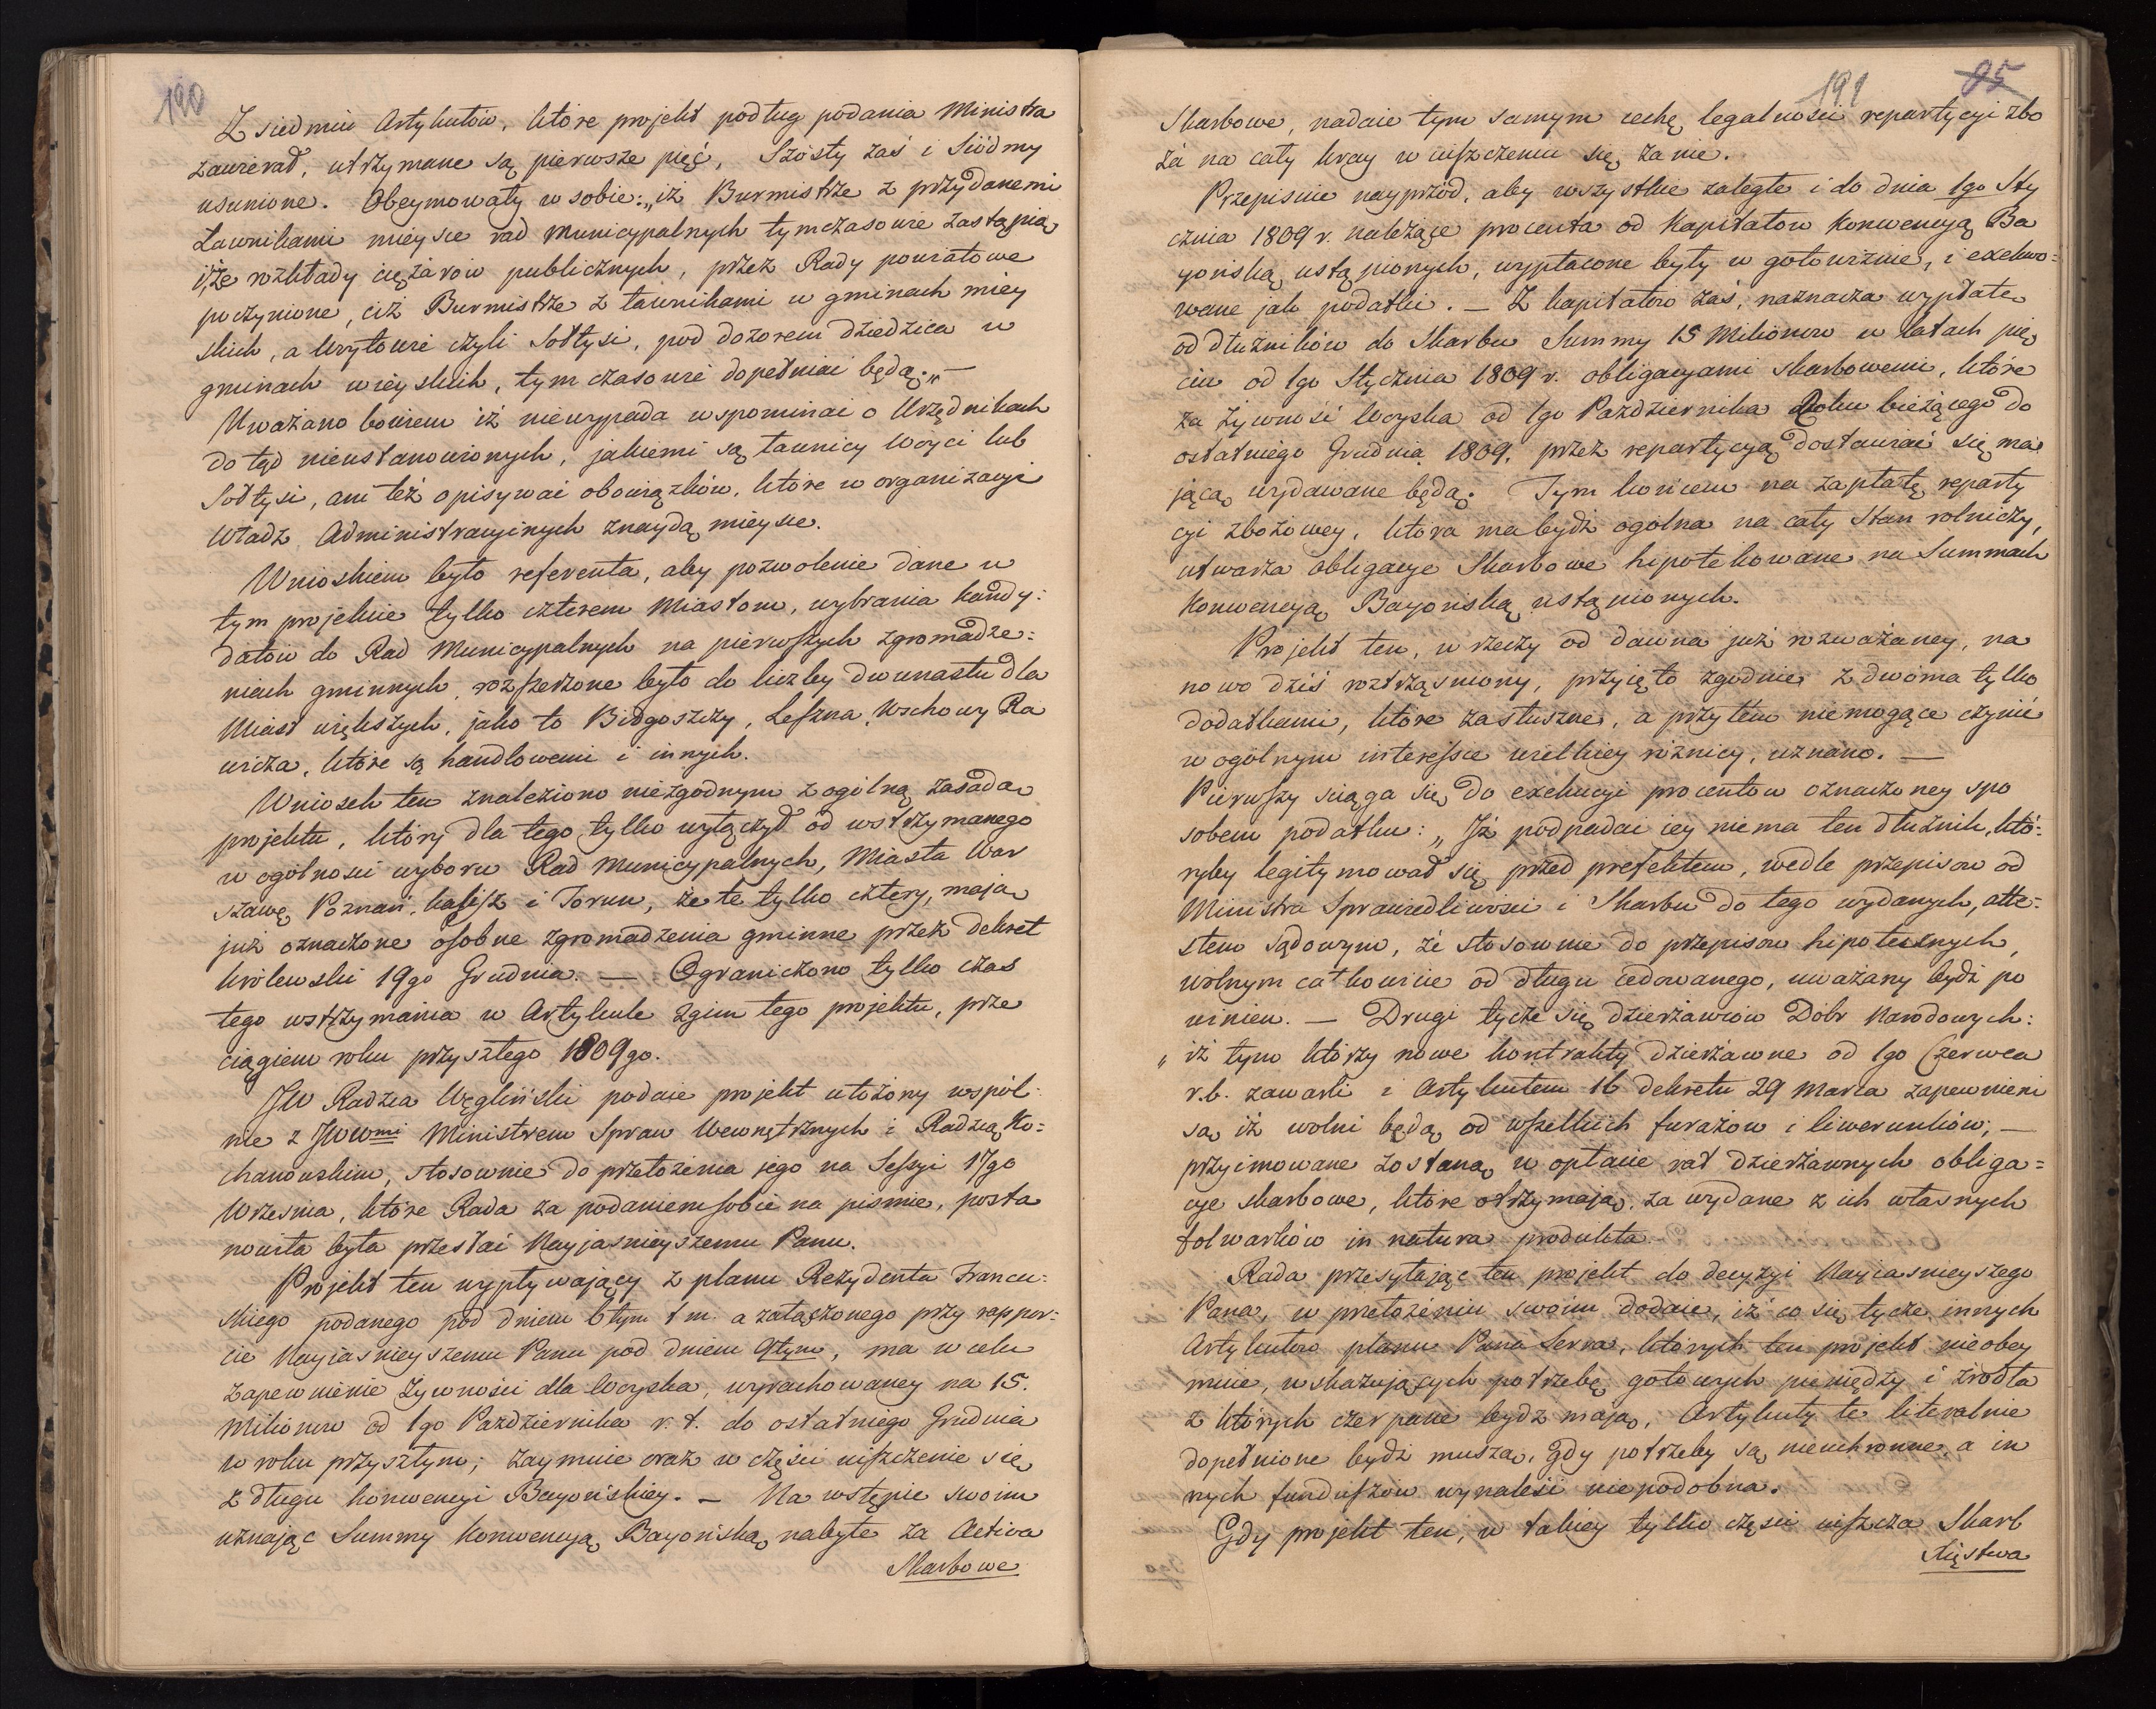 190
Z siedmiu Artykułów, które projekt podług podania Ministra
zawierał, utrzymane są pierwsze pięć, Szósty zaś i Siódmy
usunione. Obeymowały w sobie: „iż Burmistrze z przydanemi
Ławnikami mieysce rad Municypalnych tymczasowie zastąpią
i, że rozkłady ciężarów publicznych, przez Rady powiatowe
poczynione, ciż Burmistrze z ławnikami w gminach miey
skich, a Woytowie czyli Sołtysi, pod dozorem dziedzica w
gminach wieyskich, tymczasowie dopełniać będą.„ —
Uważano bowiem iż niewypada wspominać o Urzędnikach
dotąd nieustanowionych, jakiemi są ławnicy Woyci lub
Sołtysi, ani też opisywać obowiązków, które w organizacyi
Władz Administracyinych znaydą mieysce.
Wnioskiem było referenta, aby pozwolenie dane w
tym projekcie tylko czterem Miastom, wybrania kandy:
datów do Rad Municypalnych na pierwszych zgromadze:
niach gminnych, rozszerzone było do liczby dwunastu dla
Miast większych, jako to Bidgoszczy, Leszna, Wschowy Ra
wicza, które są handlowemi i innych.
Wniosek ten znaleziono niezgodnym z ogólną zasadą
projektu, który dla tego tylko wyłączył od wstrzymanego
w ogólności wyboru Rad Municypalnych, Miasta War
szawę, Poznań, Kalisz i Toruń, że te tylko cztery, mają
już oznaczone osobne zgromadzenia gminne przez dekret
królewski 19go Grudnia. — Ograniczono tylko czas
tego wstrzymania w Artykule 2gim tego projektu, prze
ciągiem roku przyszłego 1809go.
JW Radzca Węgliński podaie projekt ułożony wspól:
nie z JWWmi Ministrem Spraw Wewnętrznych i Radzcą Ko=
chanowskim, stosownie do przełożenia jego na Sessyi 17go
Września, które Rada za podaniem sobie na pismie, posta
nowiła była przesłać Nayjasnieyszemu Panu.
Projekt ten wypływający z planu Rezydenta Francu:
skiego podanego pod dniem 6tym t m. a załączonego przy rappor:
cie Nayjasnieyszemu Panu pod dniem 9tym, ma w celu
zapewnienie żywności dla Woyska, wyrachowaney na 15.
Milionów od 1go Pazdziernika r. t. do ostatniego Grudnia
w roku przyszłym; zaymuie oraz w części uiszczenie się
z długu konwencyi Bayońskiey. — Na wstępie swoim
uznając Summy Konwencyą Bayońską nabyte za Activa
Skarbowe
191 95
Skarbowe, nadaie tym samym cechę legalności repartycyi zbo
ża na cały kray w uiszczeniu się za nie.
Przepisuie nayprzód, aby wszystkie zaległe i do dnia 1go Sty
cznia 1809 r. należące procenta od Kapitałow Konwencyą Ba
yońską ustąpionych, wypłacone były w gotowiźnie, i exekwo=
wane jak podatki. — Z kapitałów zaś, naznacza wypłatę
od dłużników do Skarbu Summy 15 Milionow w latach pię
ciu od 1go Stycznia 1809 r. obligacyami skarbowemi, które
za żywność Woyska od 1go Pazdziernika Roku bieżącego do
ostatniego Grudnia 1809. przez repartycyą dostawiać się ma
jącą, wydawane będą. Tym końcem na zapłatę reparty
cyi zbożowey, która ma bydź ogólna na cały Stan rolniczy,
utwarza obligacye Skarbowe hipotekowane na Summach
Konwencyą Bayońską ustąpionych.
Projekt ten, w rzeczy od dawna już rozważaney, na
nowo dziś roztrząśniony, przyięto zgodnie z dwóma tylko
dodatkami, które za słuszne, a przytém niemogące czynić
w ogólnym interessie wielkiey różnicy, uznano. —
Pierwszy sciąga się do exekucyi procentow oznaczoney spo
sobem podatku: „Iż podpadać iey niema ten dłużnik, któ:
ryby legitymował się przed prefektem, wedle przepisow od
Ministra Sprawiedliwości i Skarbu do tego wydanych, atte:
stem sądowym, że stosownie do przepisow hipotecznych,
wolnym całkowicie od długu cedowanego, uważany bydź po
winien. — Drugi tycze się dzierżawców Dóbr Narodowych:
„iż tym którzy nowe kontrakty dzierżawne od 1go Czerwca
r. b. zawarli i Artykułem 16 dekretu 29 Marca zapewnieni
są, iż wolni będą od wszelkich furażow i liwerunków; —
przyimowane zostaną w opłacie rat dzierżawnych obliga=
cye skarbowe, które otrzymają, za wydane z ich własnych
folwarków in natura produkta.
Rada przesyłając ten projekt do decyzyi Nayjasnieyszego
Pana, w przełożeniu swoim dodaie, iż co się tycze innych
Artykułów planu Pana Serra, których ten projekt nieobey
muie, wskazujących potrzebę gotowych pieniędzy i źródła
z których czerpane bydź mają, Artykuły te literalnie
dopełnione bydź muszą, gdy potrzeby są nieuchronne, a in
nych funduszów wynaleść niepodobna.
Gdy projekt ten, w takiey tylko części uiszcza Skarb
Xięstwa